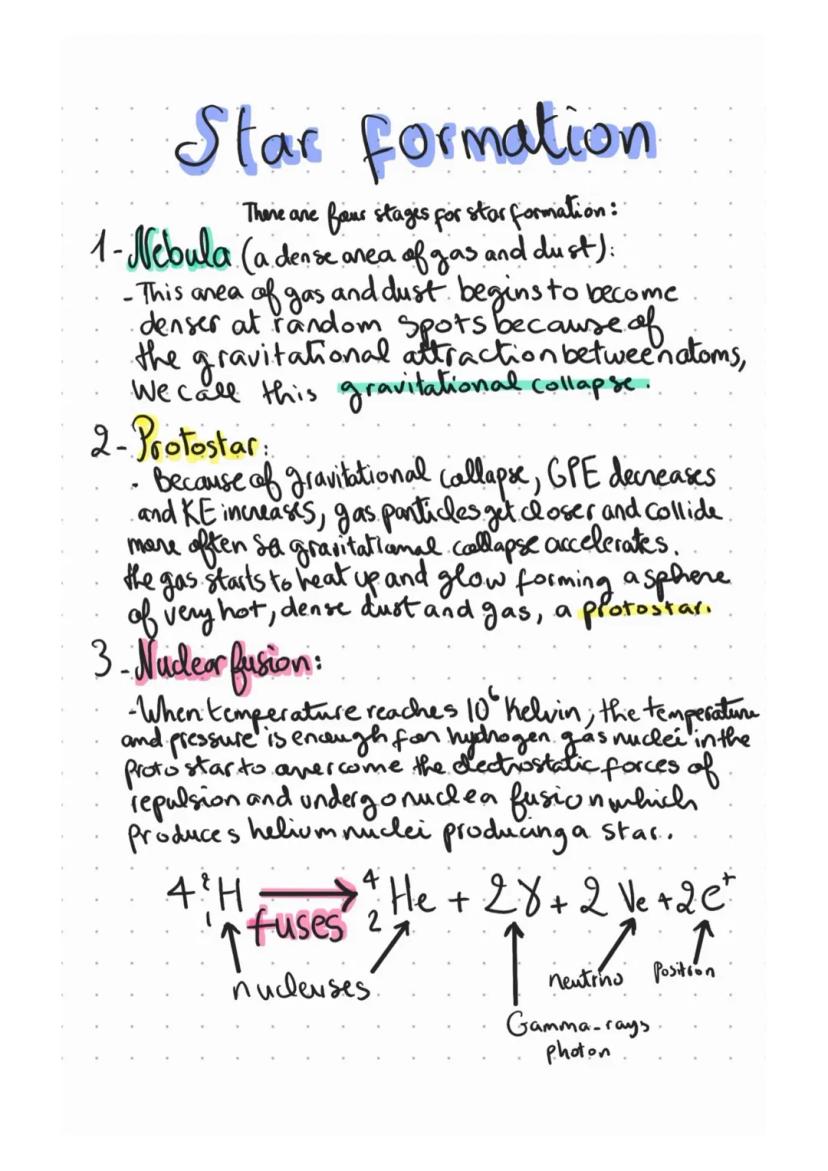 Star formation
There are four stages for star formation:
1- Nebula (a dense area of gas and dust):
- This area of gas and dust begins to become
denser at random spots because of
the gravitational attraction between atoms,
We call this gravitational collapse.
2- Protostar:
. Because of gravitational collapse, GPE decreases
and KE increases, gas particles get closer and collide
more often so gravitational collapse accelerates.
the gas starts to heat up and glow forming a sphere
of very hot, dense dust and gas, a protostar.
3- Nuclear fusion:
-When temperature reaches 10⁶ Kelvin, the temperature
and pressure is enough for hydrogen gas nuclei in the
proto star to overcome the electrostatic forces of
repulsion and undergo nuclea fusion which
produces helium nuclei producing a star.
4 ²₁H → ⁴₂He + 2γ + 2 Ve + 2e⁺
fuses
nucleuses
neutrino
Position
Gamma-rays
photon